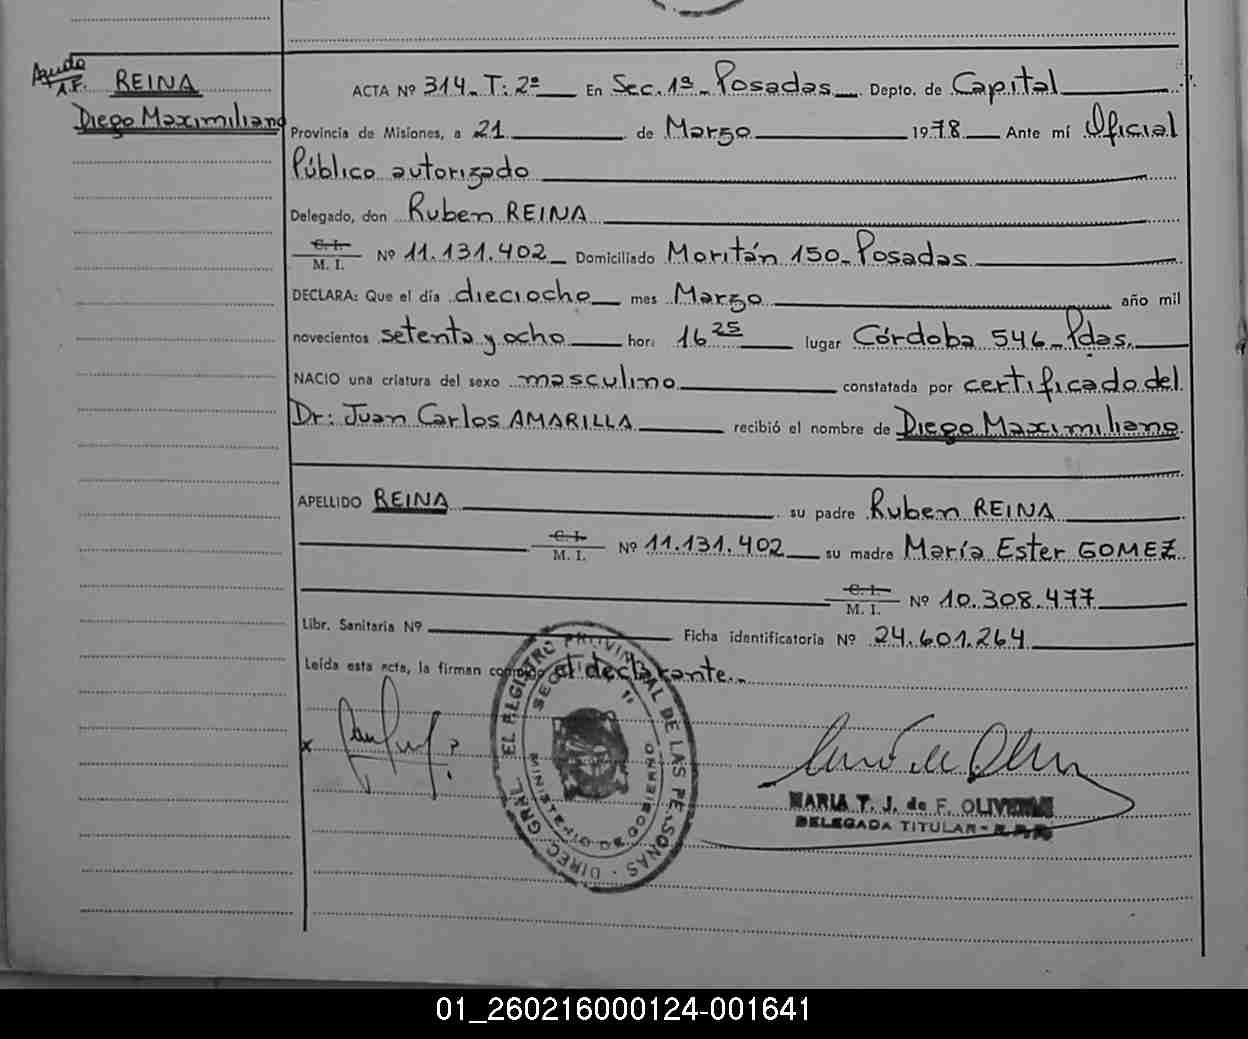 REINA
Diego Maximiliano
ACTA Nº 314. T: 2º En Sec. 1ª. Posadas Depto. de Capital
Provincia de Misiones, a 21 de Marzo 1978 Ante mí Oficial
Público autorizado
Delegado, don Ruben REINA
C. I.
M. I. Nº 11.131.402 Domiciliado Moritán 150. Posadas
DECLARA: Que el día dieciocho mes Marzo año mil
novecientos setenta y ocho hor. 16 25 lugar Córdoba 546. Pdas.
NACIO una criatura del sexo masculino constatada por certificado del
Dr: Juan Carlos AMARILLA recibió el nombre de Diego Maximiliano
APELLIDO REINA su padre Ruben REINA
C. I.
M. I. Nº 11.131.402 su madre María Ester GOMEZ
C. I.
M. I. Nº 10.308.477
Libr. Sanitaria Nº Ficha identificatoria Nº 24.601.264
Leída esta acta, la firman conmigo el declarante..
MARIA T. J. de F. OLIVEIRA
DELEGADA TITULAR
01_260216000124-001641